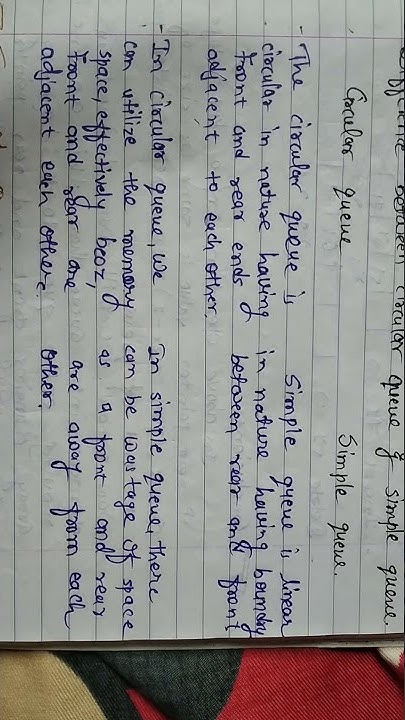 Difference between circular queue & simple queue.
Circular queue
Simple queue.
- The circular queue is
circular in nature having
front and rear ends
adjacent to each other.
Simple queue is linear
in nature having boundry
between rear and front
- In circular queue, we
can utilize the memory
space, effectively becoz,
front and rear are
adjacent each other.
In simple queue, there
can be wastage of space
as a front and rear
are away from each
other.